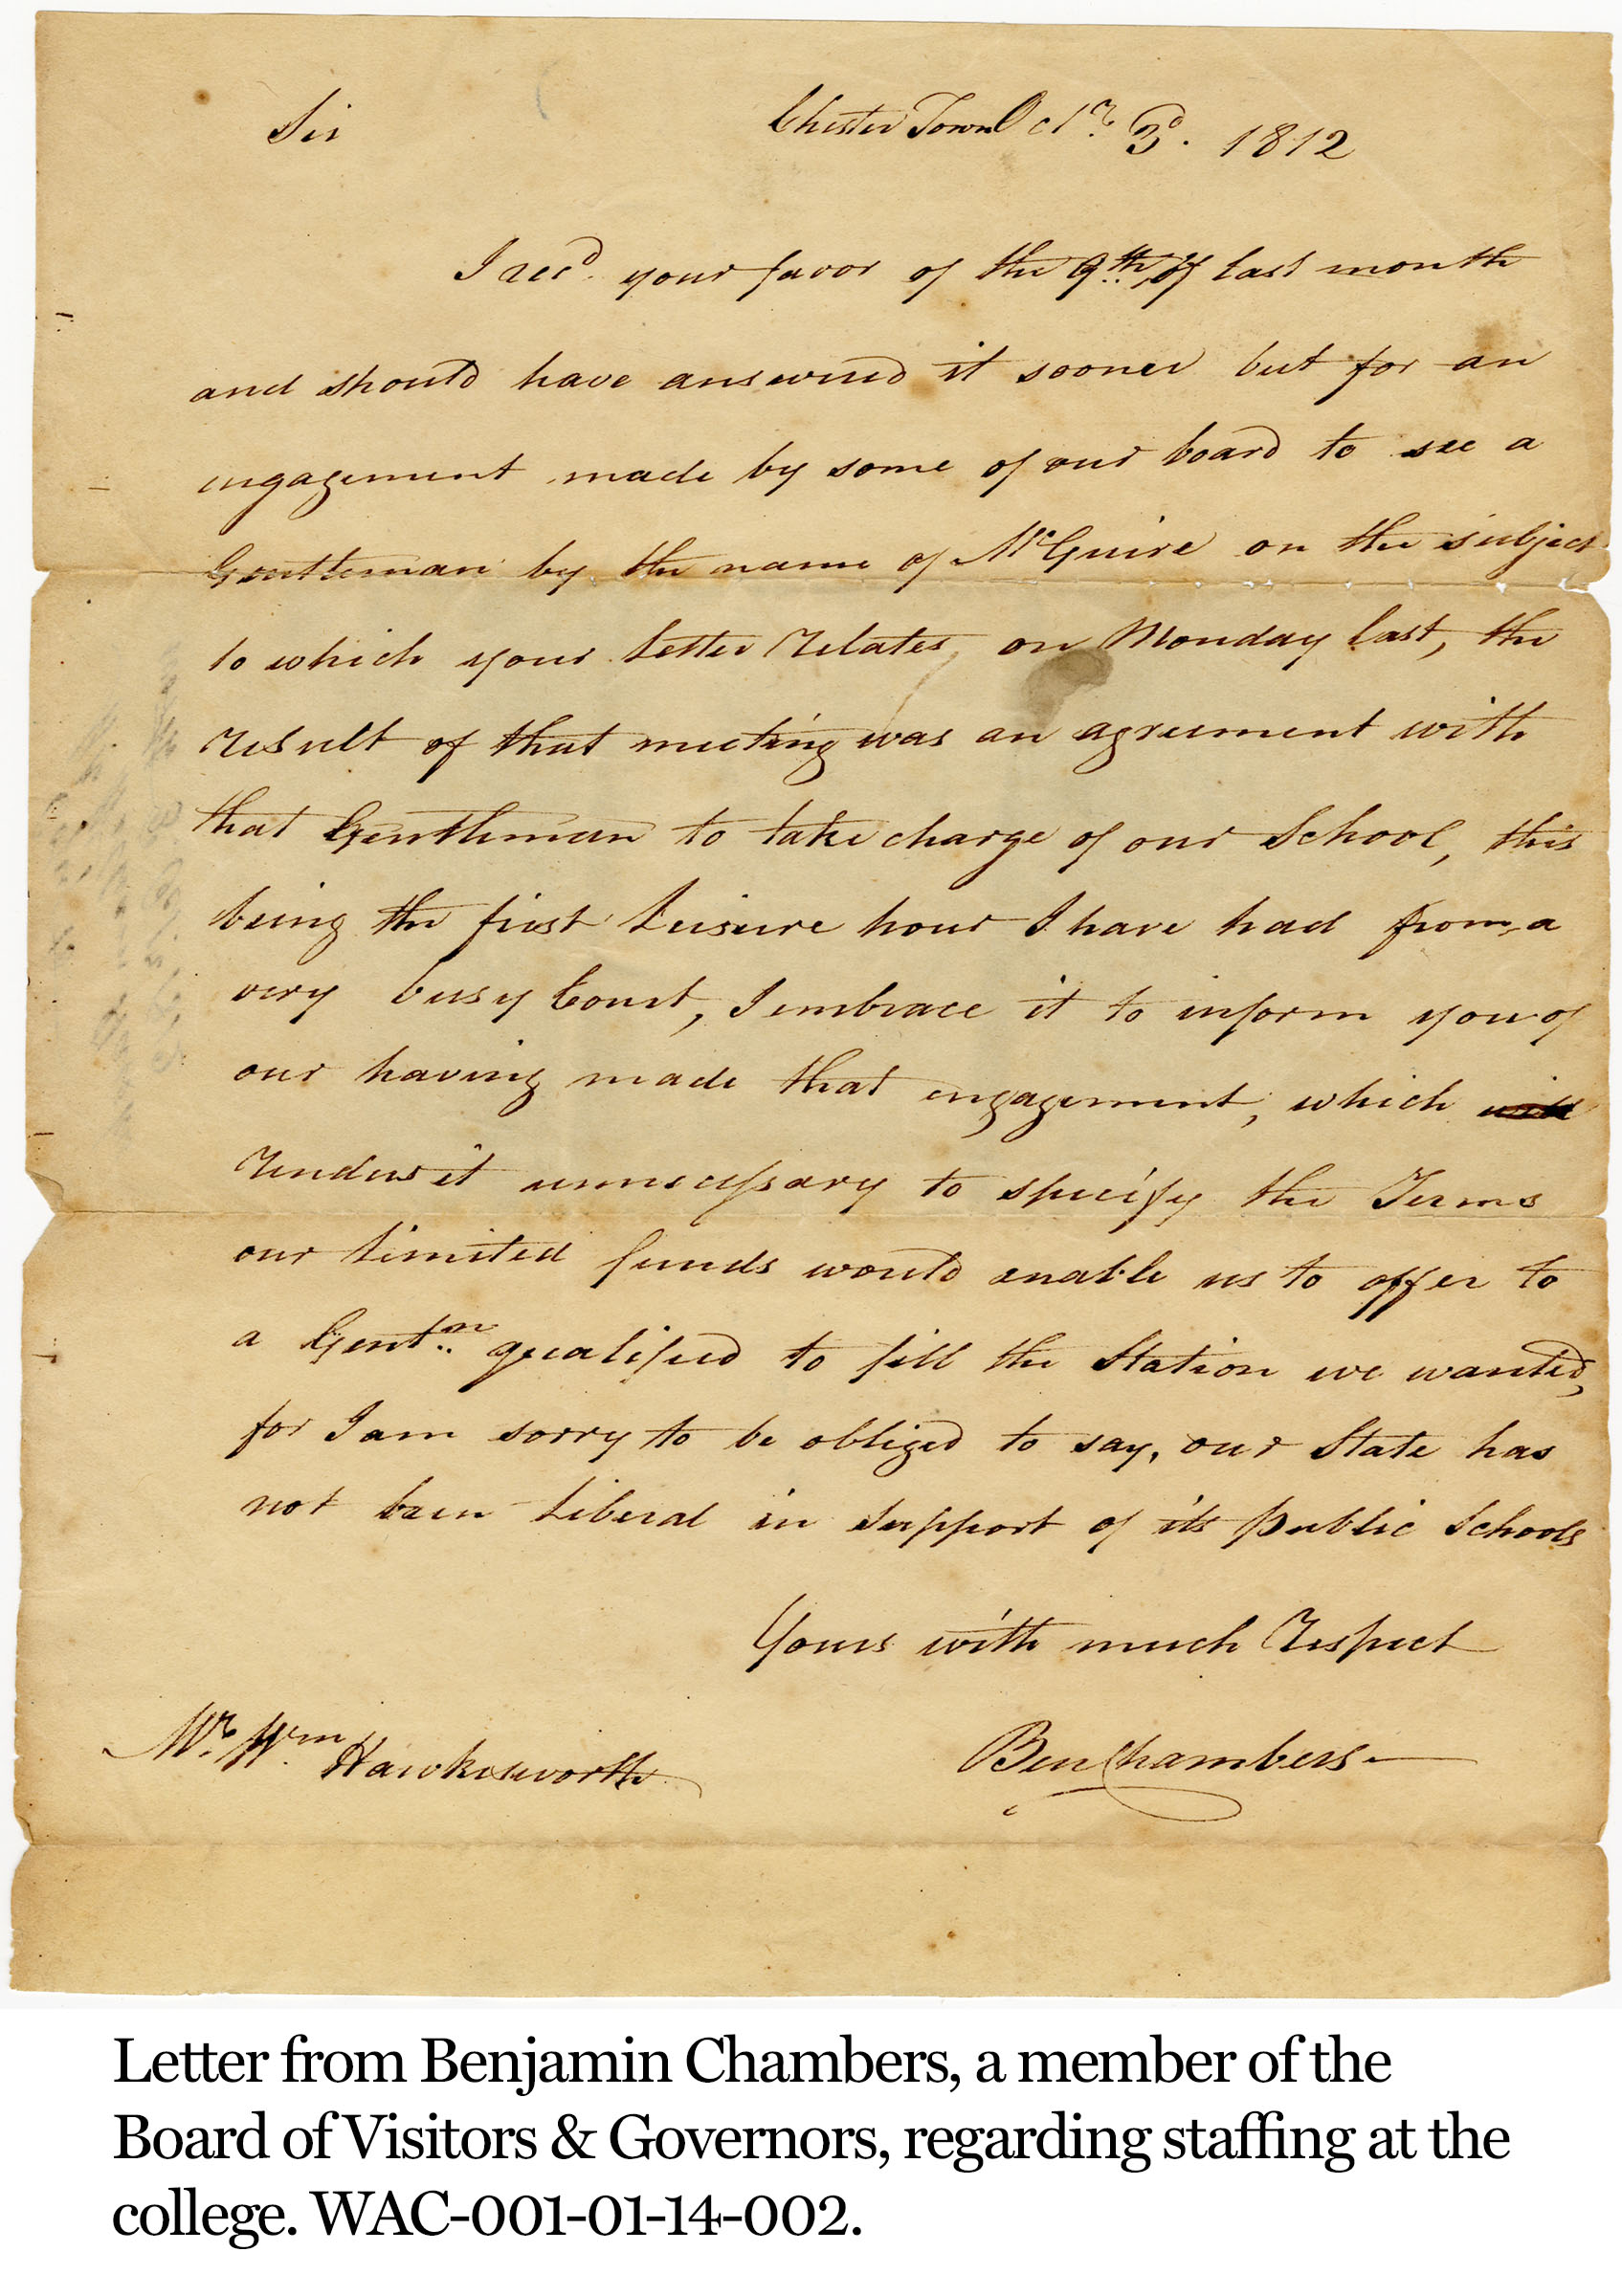 Sir
Chester Town Octr. 3d. 1812
I recd. your favor of the 9th. of last month
and should have answered it sooner but for an
engagement made by some of our board to see a
Gentleman by the name of McGuire on the subject
to which your letter relates, on Monday last, the
result of that meeting was an agreement with
that Gentleman to take charge of our School, this
being the first leisure hour I have had from a
very busy Court, I embrace it to inform you of
our having made that engagement, which
renders it unnecessary to specify the Terms
our limited funds would enable us to offer to
a Gentn. qualified to fill the Station we wanted,
for I am sorry to be obliged to say, our State has
not been liberal in support of its public Schools
Yours with much respect
Mr. Wm. Hawkesworth
Ben Chambers
Letter from Benjamin Chambers, a member of the
Board of Visitors & Governors, regarding staffing at the
college. WAC-001-01-14-002.